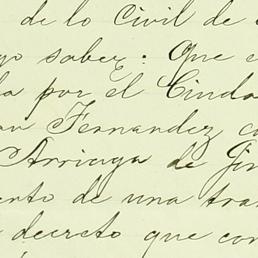 de lo Civil de
go saber: Que e
da por el Ciuda
an Fernandez co
Arriaga de Jim
ento de una tra
decreto que con